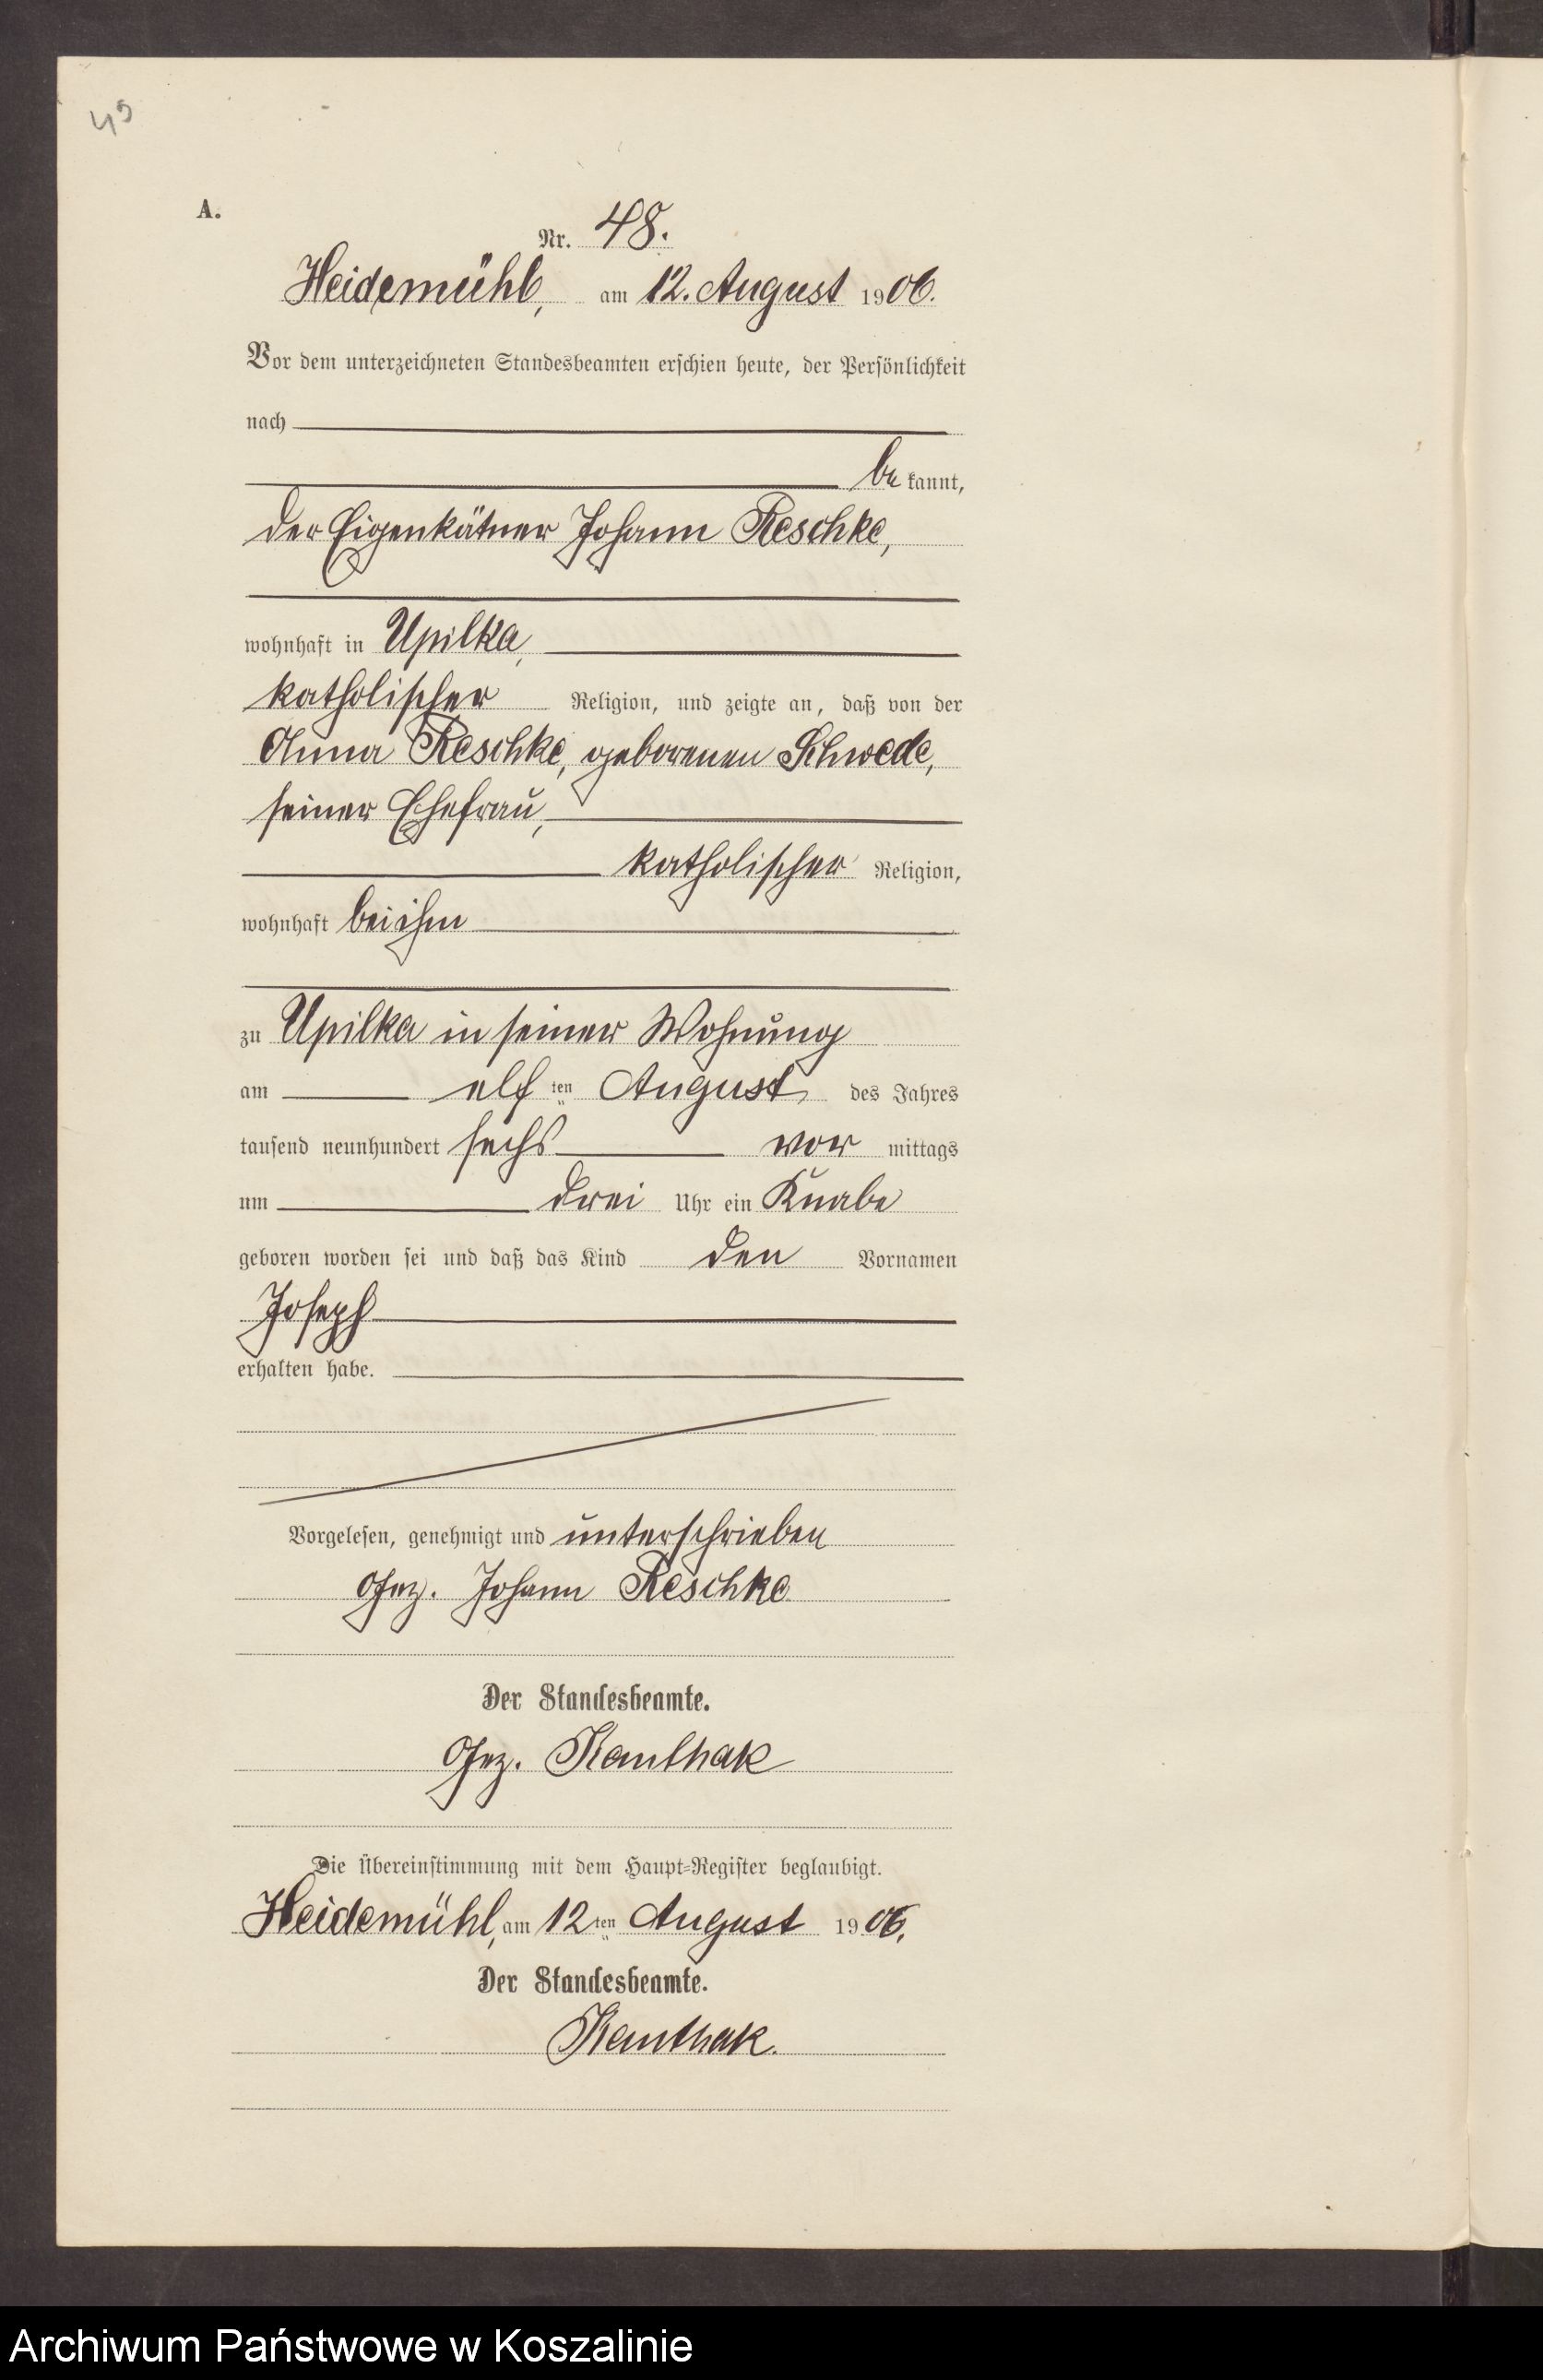 49
A.
Nr. 48.
Heidemühl, am 12. August 1906.
Vor dem unterzeichneten Standesbeamten erschien heute, der Persönlichkeit
nach
be kannt,
der Eigenkätner Johann Reschke,
wohnhaft in Upilka,
katholischer Religion, und zeigte an, daß von der
Anna Reschke, geborenen Schwede,
seiner Ehefrau,
katholischer Religion,
wohnhaft bei ihm
zu Upilka in seiner Wohnung
am elf ten August des Jahres
tausend neunhundert sechs vor mittags
um drei Uhr ein Knabe
geboren worden sei und daß das Kind den Vornamen
Joseph
erhalten habe.
Vorgelesen, genehmigt und unterschrieben
Gez. Johann Reschke
Der Standesbeamte.
Gez. Kanthak
Die Übereinstimmung mit dem Haupt-Register beglaubigt.
Heidemühl, am 12 ten August 1906.
Der Standesbeamte.
Kanthak.
Archiwum Państwowe w Koszalinie